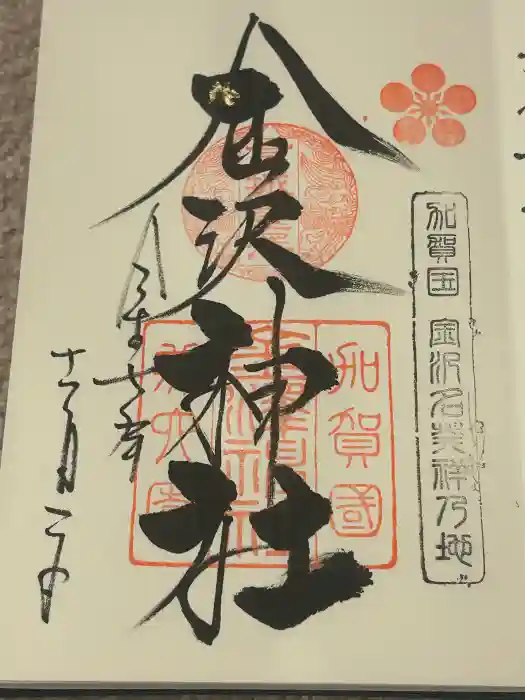 加賀国 金沢名発祥乃地
金沢神社
加賀國
金澤神社
兼六園
平成二十七年
十一月